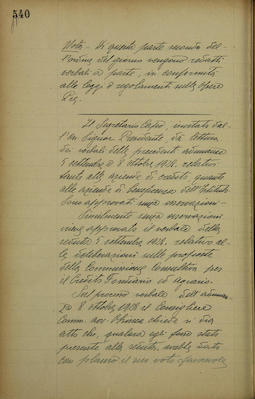 540
Nota - Di questa parte seconda del-
l'ordine del giorno vengono redatti
verbali a parte, in conformità
alle leggi e regolamenti sulle Opere
Pie.
Il Segretario Capo, invitato dal-
l'on. Signor Presidente dà lettura
dei verbali delle precedenti adunanze
5 settembre e 8 ottobre 1928, relativi
tanto alle aziende di credito quanto
alle aziende di beneficenza dell'Istituto
Sono approvati senza osservazioni -
Similmente senza osservazioni
viene approvato il verbale della
seduta 5 settembre 1928, relativo al-
le deliberazioni sulle proposte
della Commissione Consultiva per
il Credito Fondiario ed Agrario.
Sul processo verbale dell'adunan-
za 8 ottobre 1928 il Consigliere
Comm. avv. chiede si dia
atto che, qualora egli fosse stato
presente alla seduta, avrebbe dato
con plauso il suo voto favorevole